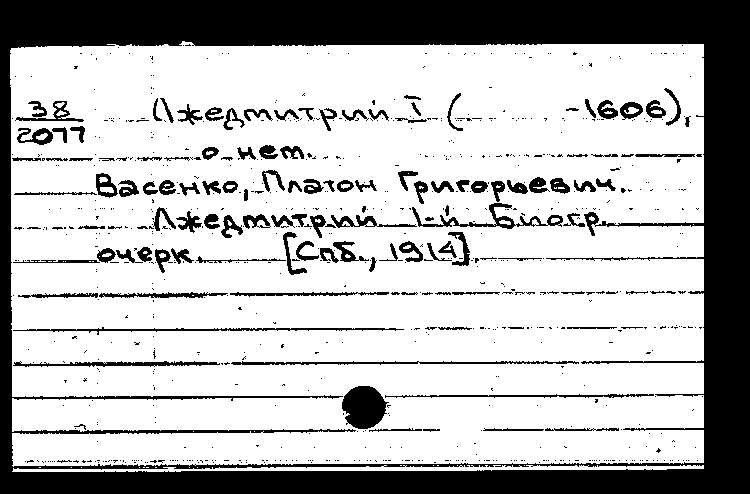 38 Лжедмитрий I ( -1606),
2077
о нет.
Васенко, Платон Григорьевич.
Лжедмитрий 1-й. Биогр.
очерк. [Спб., 1914].